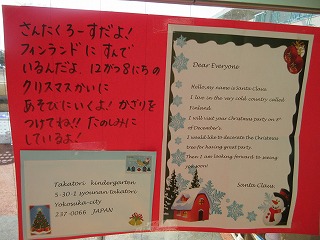 さんたくろーすだよ!
フィンランドにすんで
いるんだよ。12がつ8にちの
クリスマスかいに
あそびにいくよ! かざりを
つけてね!! たのしみに
しているよ!
Dear Everyone
Hello,my name is Santa Claus.
I live in the very cold country called
Finland.
I will visit your Christmas party on 8th
of December's.
I would like to decorate the Christmas
tree for having great party.
Then I am looking forward to seeing
you soon!
Santa Claus
Takatori kindergarten
5-30-1 syounan takatori
Yokosuka-city
237-0066 JAPAN